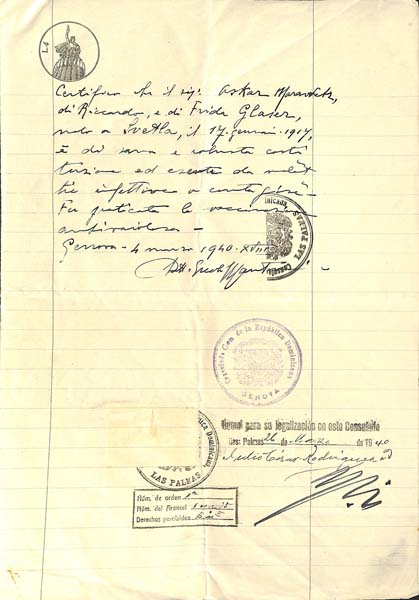 L.4
Certifico che il sig. Askar
di Riccardo, e di Frida Glaser,
nato a Svetla, il 17 gennaio 1917,
è di sana e robusta costi
tuzione ed esente da malat
tie infettive o contagiose -
Fu praticata la vaccinazione
antivaiolosa -
Genova - 4 marzo 1940 - XVIII
Dott.
LAS PALMAS
Consulado Gen. de la República Dominicana
GENOVA
para su legalización en este Consulado
Las Palmas 26 de Marzo de 1940
Julio César Rodríguez
Dominicana
LAS PALMAS
Núm. de orden 1ª
Núm. del Arancel
Derechos percibidos